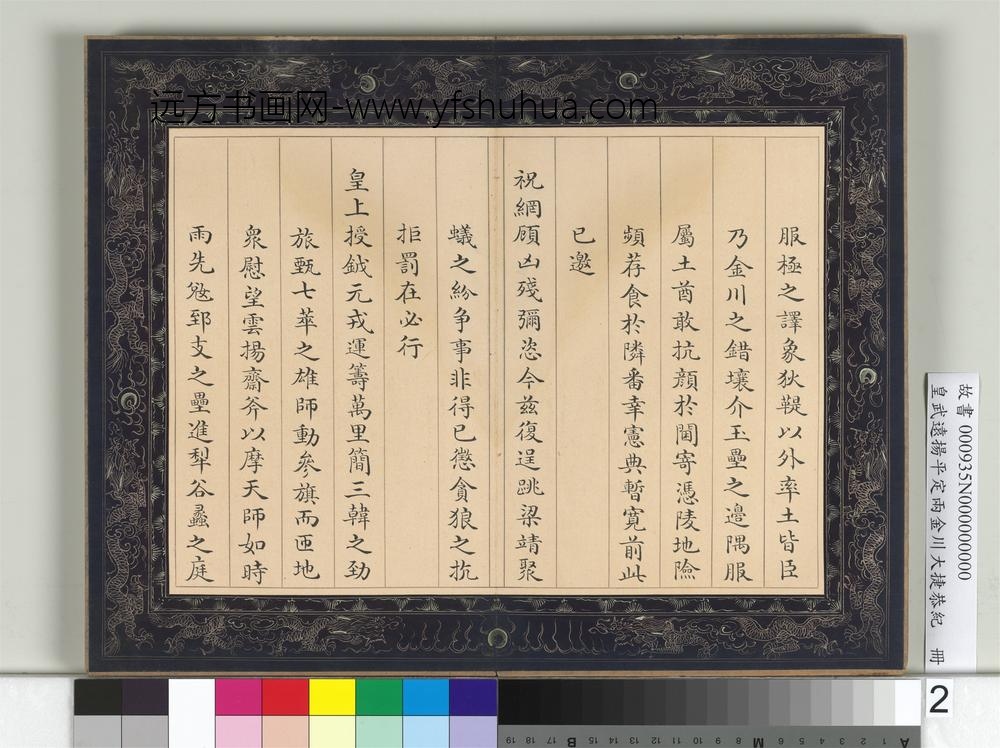 远方书画网-www.yfshuhua.com
服極之譯象狄鞮以外率土皆臣
乃金川之錯壤介玉壘之邊隅服
屬土酋敢抗顏於閫寄憑陵地險
頻荐食於隣番幸憲典暫寬前此
已邀
祝網頋凶殘彌恣今兹復逞跳梁靖聚
蟻之紛争事非得已懲貪狼之抗
拒罰在必行
皇上授鉞元戎運籌萬里簡三韓之勁
旅甄七萃之雄師動參旗而匝地
衆慰望雲揚齋斧以摩天師如時
雨先兙郅支之壘進犁谷蠡之庭
故書 000935N000000000
皇武遠揚平定兩金川大捷恭紀 冊
2
A 1 2 3 4 5 6 7 M 8 9 10 11 12 13 14 15 B 16 17 18 19